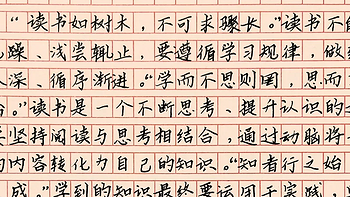 “读书如树木，不可求骤长。”读书不能
躁、浅尝辄止，要遵循学习规律，做
入深、循序渐进。“学而不思则罔，思而
。”读书是一个不断思考、提升认识的
坚持阅读与思考相结合，通过动脑将
的内容转化为自己的知识。“知者行之始
成。”学到的知识最终要运用于实践，